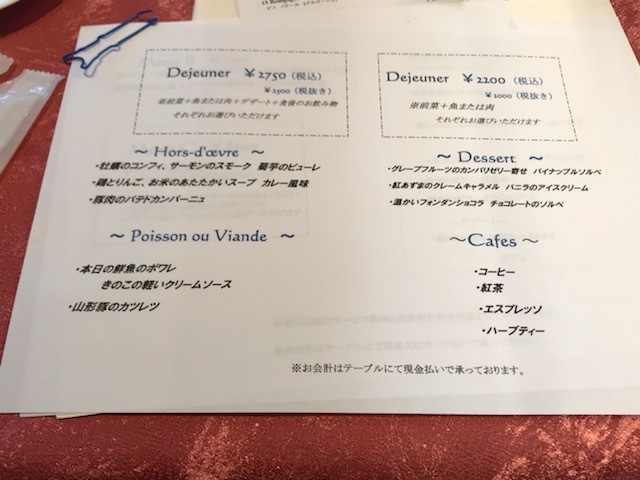 Dejeuner ￥2750（税込）
￥2500（税抜き）
※前菜＋魚または肉＋デザート＋食後のお飲み物
それぞれお選びいただけます
Dejeuner ￥2200（税込）
￥2000（税抜き）
※前菜＋魚または肉
それぞれお選びいただけます
～ Hors-d'œvre ～
・牡蠣のコンフィ、サーモンのスモーク 菊芋のピューレ
・鶏とりんご、お米のあたたかいスープ カレー風味
・豚肉のパテドカンパーニュ
～ Poisson ou Viande ～
・本日の鮮魚のポワレ
きのこの軽いクリームソース
・山形豚のカツレツ
～ Dessert ～
・グレープフルーツのカンパリゼリー寄せ パイナップルソルベ
・紅あずまのクレームキャラメル バニラのアイスクリーム
・温かいフォンダンショコラ チョコレートのソルベ
～Cafes～
・コーヒー
・紅茶
・エスプレッソ
・ハーブティー
※お会計はテーブルにて現金払いで承っております。